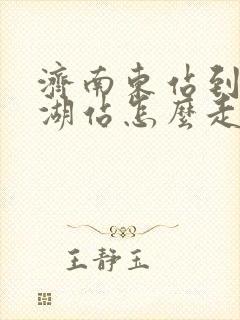 濟南東佔到
湖佔怎麼走
王靜玉